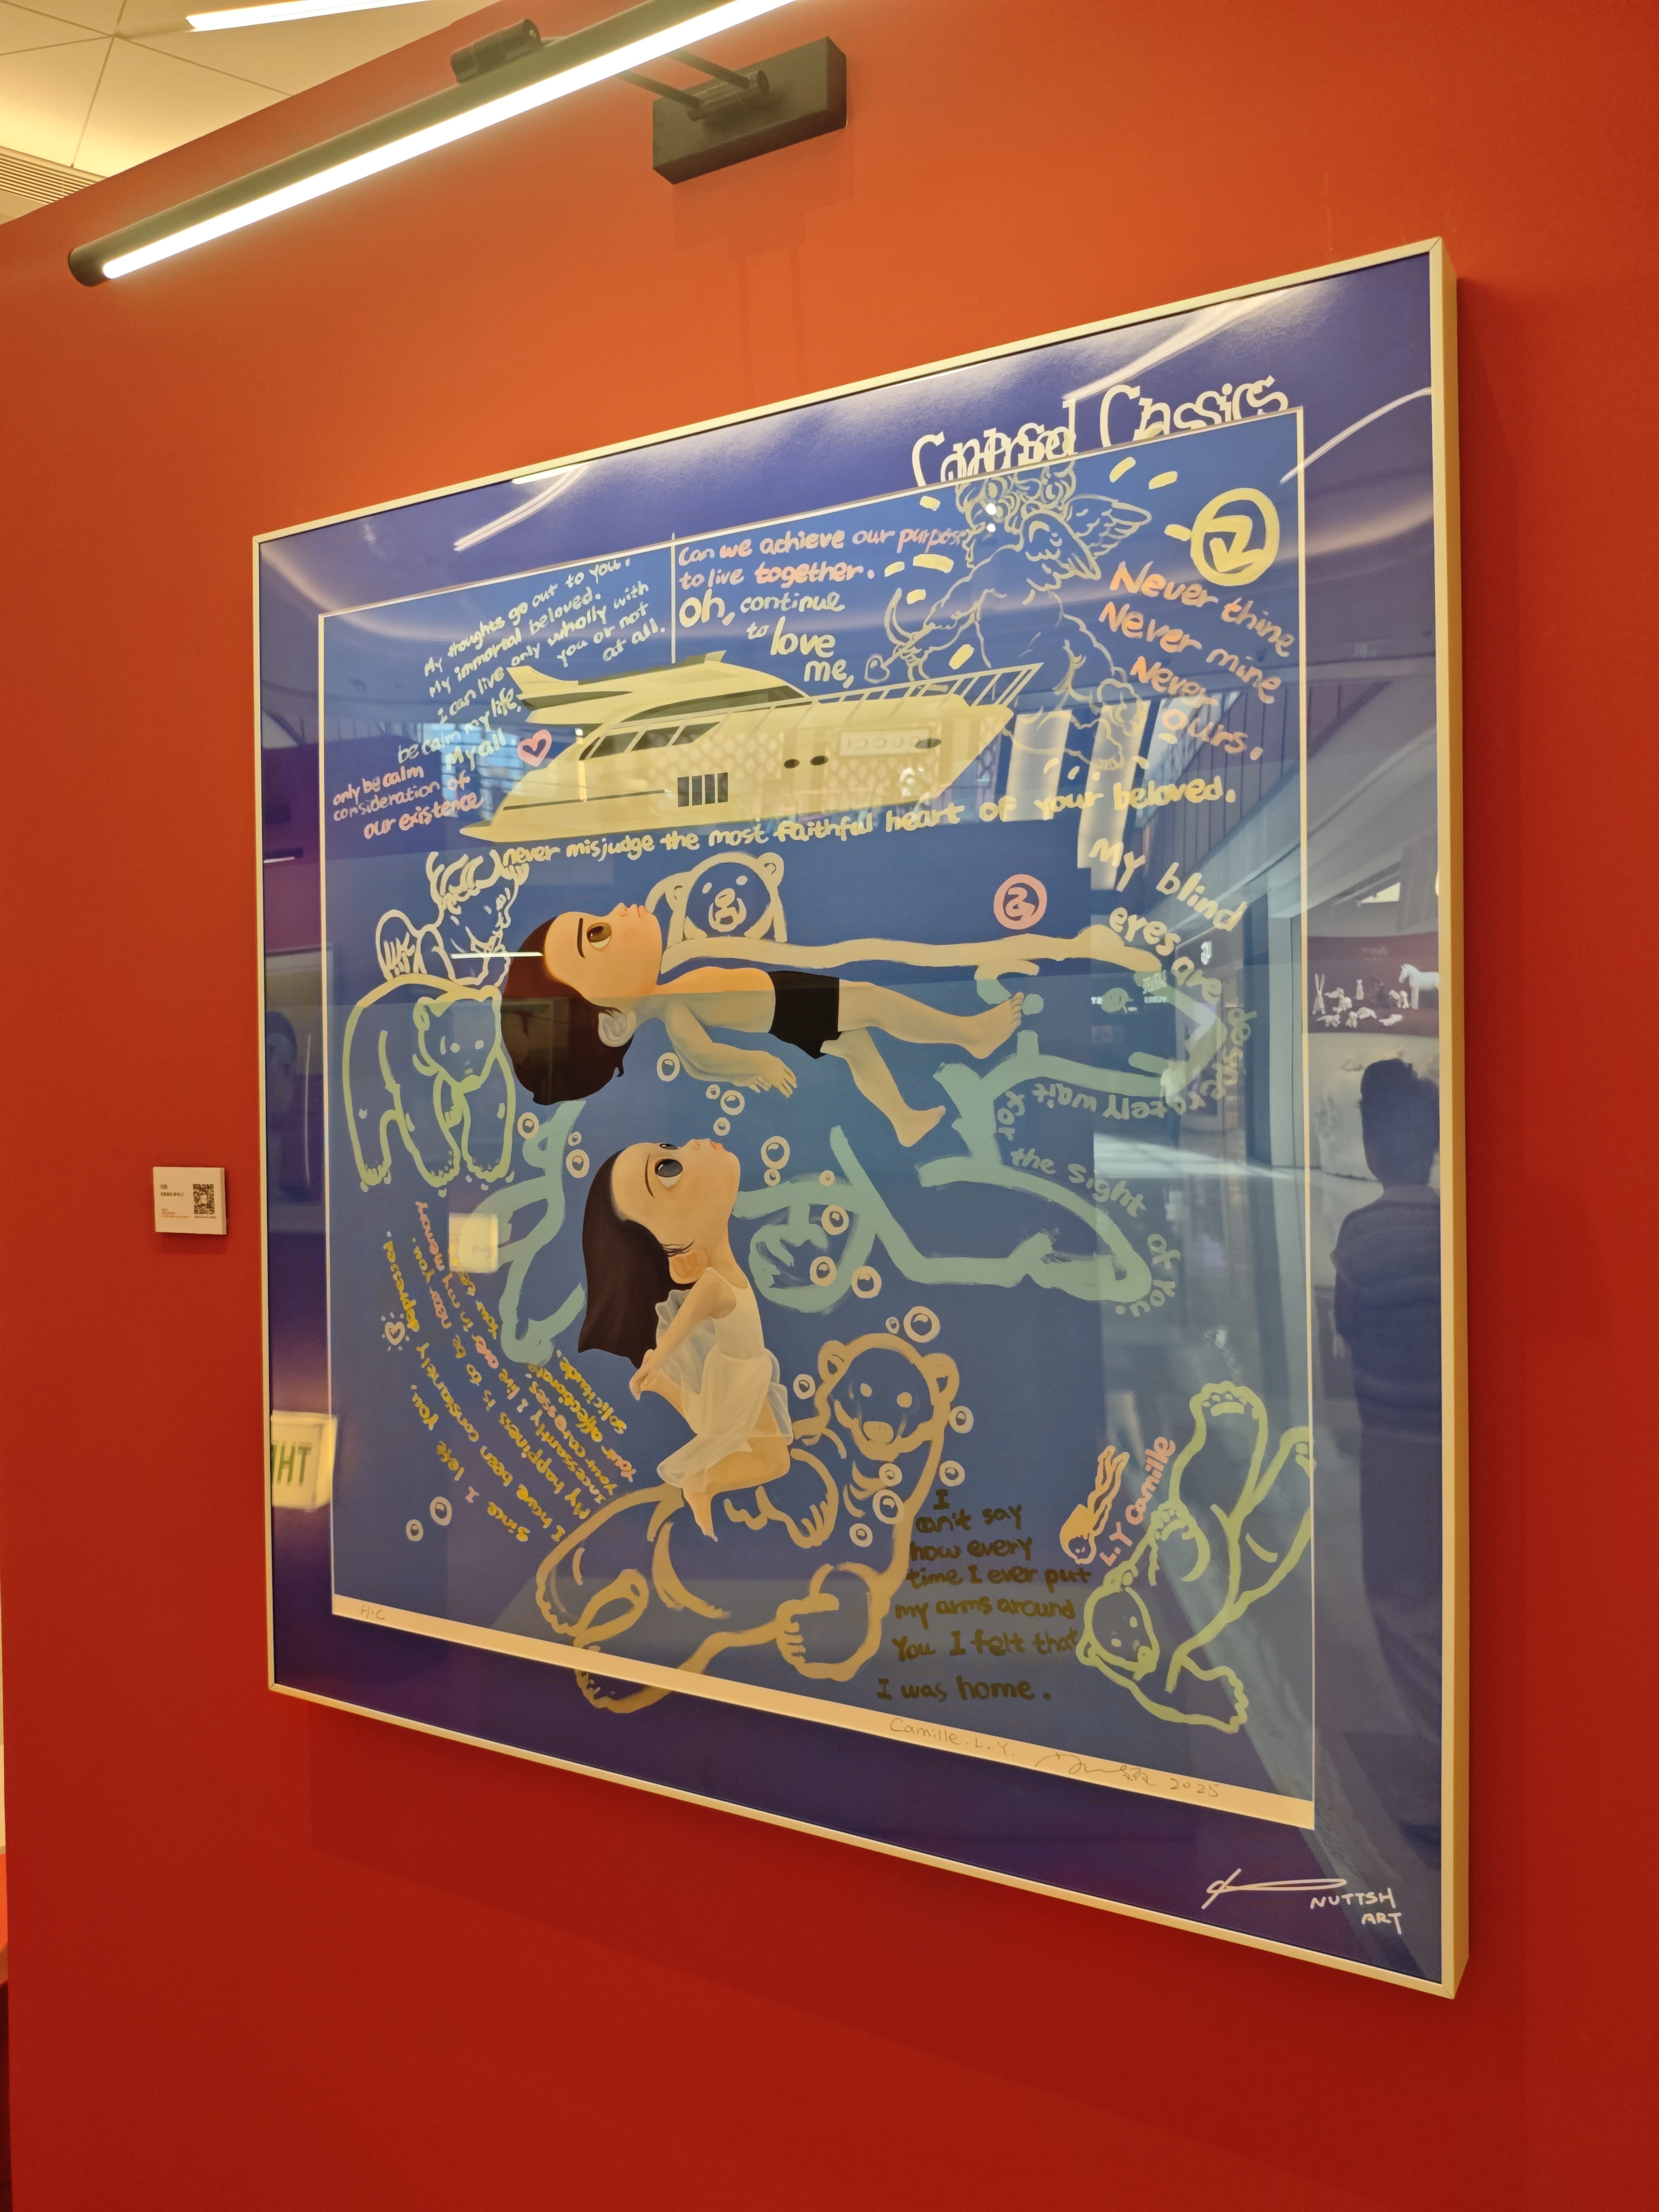 Classics
My thoughts go out to you.
My immortal beloved.
I can live only wholly with
you or not
at all.
be calm my life,
My all.
only be calm
consideration of
our existence
Can we achieve our purpose
to live together.
Oh, continue
to love
me,
Never thine
Never mine
Never
ours.
GUCCI
never misjudge the most faithful heart of your beloved.
My blind
eyes are
wait
for the sight
of you.
Since I left you,
I have been constantly depressed.
My happiness is to be near you.
Incessantly I live in my memory
your caresses,
your affectionate
solicitude.
I
can't say
how every
time I ever put
my arms around
You I felt that
I was home.
L.Y Camille
H.C
Camille.L.Y.
2025
NUTTSH
ART